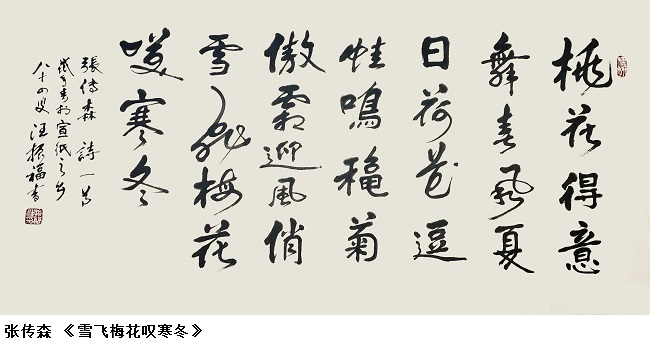 桃花得意
舞春風夏
日荷花逗
蛙鳴穐菊
傲霜迎風俏
雪飛梅花
嘆寒冬
張传森詩一首
戊子春於宣紙之鄉
八十四叟汪振福書
张传森 《雪飞梅花叹寒冬》